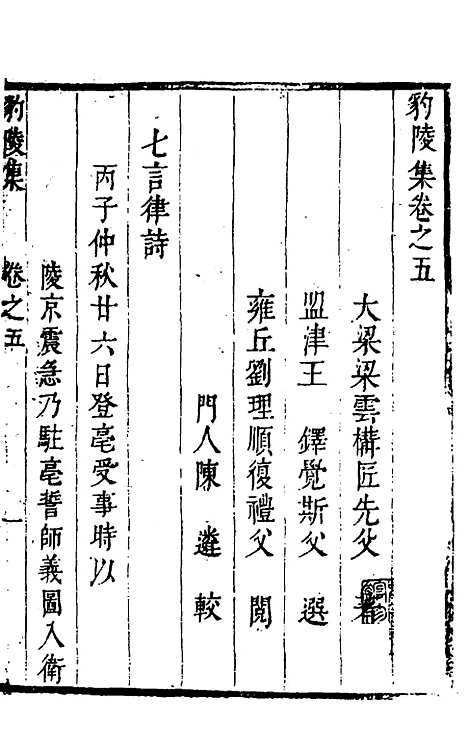 豹陵集卷之五
大梁梁雲構匠先父 著
盟津王 鐸覺斯父 選
雍丘劉理順復禮父 閱
門人陳 遴 較
七言律詩
丙子仲秋廿六日登亳受事時以
陵京震急乃駐亳誓師義圖入衛
豹陵集 卷之五 一